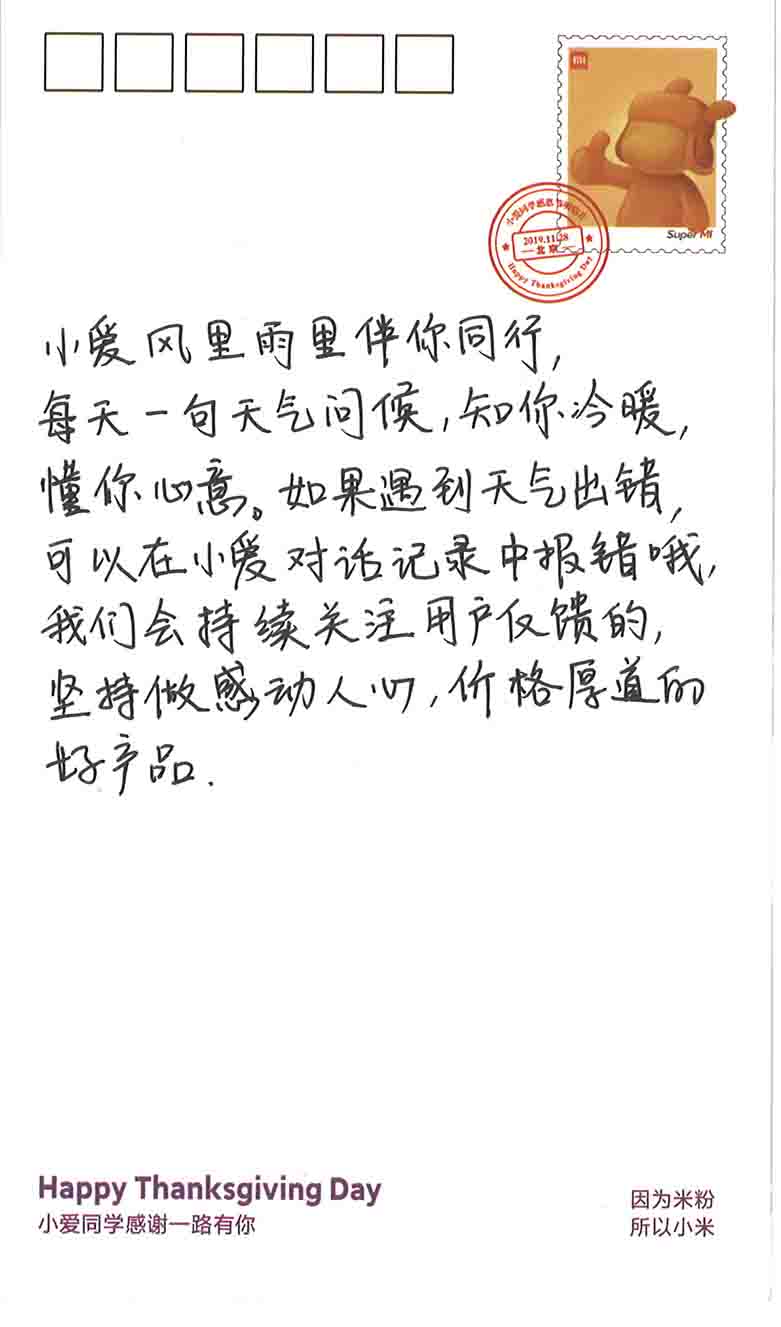 MI
Super MI
小爱同学感恩节明信片
2019.11.28
北京
Happy Thanksgiving Day
小爱风里雨里伴你同行,
每天一句天气问候,知你冷暖,
懂你心意。如果遇到天气出错,
可以在小爱对话记录中报错哦,
我们会持续关注用户反馈的,
坚持做感动人心,价格厚道的
好产品.
Happy Thanksgiving Day
小爱同学感谢一路有你
因为米粉
所以小米